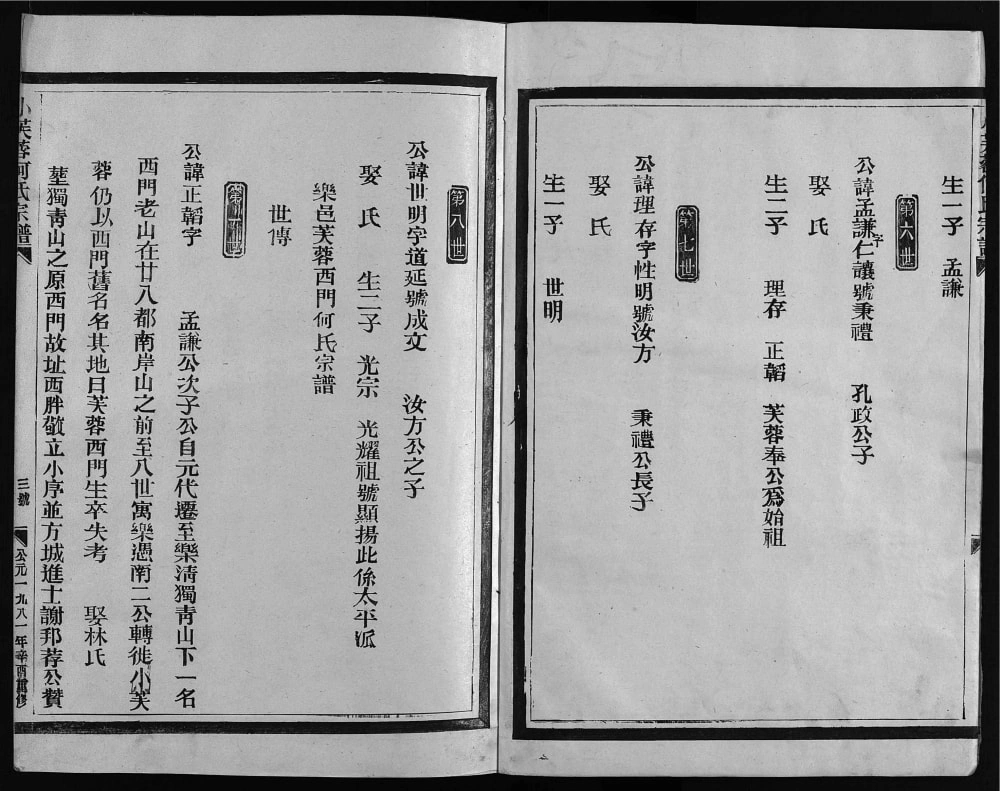 生一子　孟謙
第六世
公諱孟謙字仁讓號秉禮　孔政公子
娶　氏
生二子　理存　正韜　芙蓉奉公爲始祖
第七世
公諱理存字性明號汝方　秉禮公長子
娶　氏
生一子　世明
第八世
公諱世明字道延號成文　汝方公之子
娶　氏　生二子　光宗　光耀祖號顯揚此係太平派
樂邑芙蓉西門何氏宗譜
世傳
第六世
公諱正韜字　孟謙公次子公自元代遷至樂清獨青山下一名
西門老山在廿八都南岸山之前至八世寓樂憑南二公轉徙小芙
蓉仍以西門舊名名其地曰芙蓉西門生卒失考　娶林氏
塟獨青山之原西門故址西胖敬立小序並方城進士謝邦荐公贊
小芙蓉何氏宗譜
三號
公元一九八一年辛酉重修